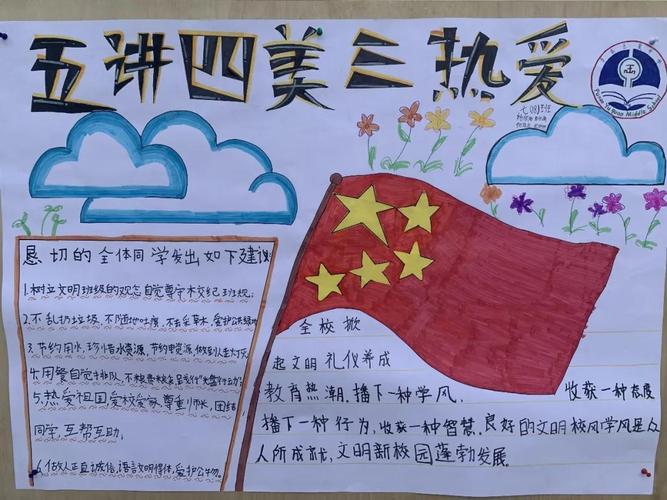 五讲四美三热爱
七(8)班
Middle School
恳切的全体同学发出如下建议
1.树立文明班级的观念自觉尊守木交纪班规;
2.不乱扔垃圾,不随地吐痰,不去采草木,爱护公共绿地
3.节约用水,珍惜香水资源,节约电资源,做到人走灯灭
4.用餐自觉排队,不粮费粮食呈实行"光盘行动"
5.热爱祖国爱校爱家,尊重师长,团结
同学,互帮互助.
人做人正直诚信,语言文明得体,爱护公物.
全校掀
起文明礼仪养成
教育热潮.播下一种学风. 收获一种态度
播下一种行为,收获一种智慧.良好的文明校风学风是人
人所成就,文明新校园蓬勃发展.